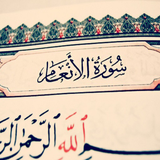 سورة الأنعام
بسم الله الرحمن الر